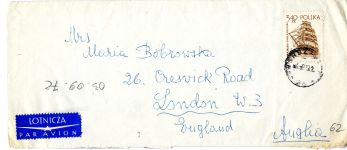 3,40 POLSKA
Mrs
Maria Bobrowska
26. Creswick Road
05.09.72
London W.3
England
Anglia 62
LOTNICZA
PAR AVION